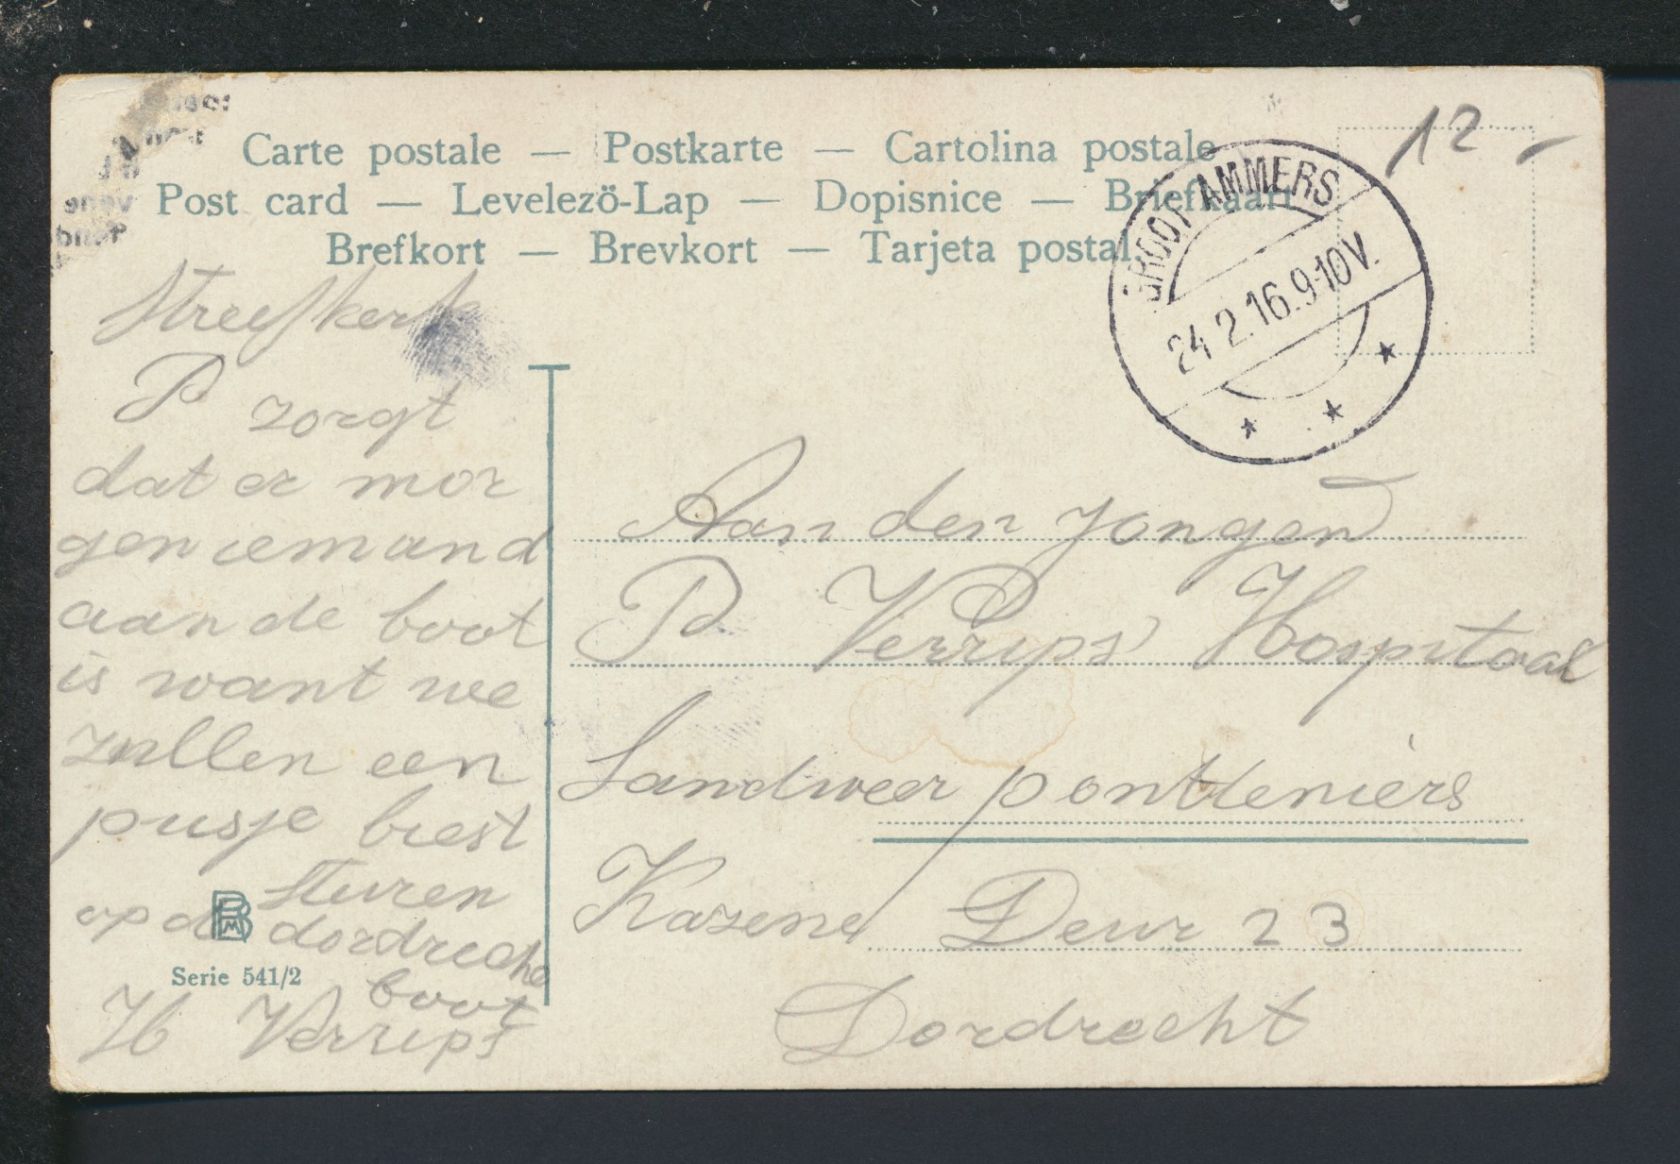 Carte postale — Postkarte — Cartolina postale
Post card — Levelezö-Lap — Dopisnice — Briefkaart
Brefkort — Brevkort — Tarjeta postal.
12 -
GROOT AMMERS
24 2.16.9-10V.
Streefkerk
P zorgt
dat er mor
gen iemand
aan de boot
is want we
zullen een
pusje brest
sturen
op de dordreche
boot
H Verrips
BM
Serie 541/2
Aan den Jongen
P Verrips Hospitaal
Landweer pontteniers
Kazene Deur 23
Dordrecht